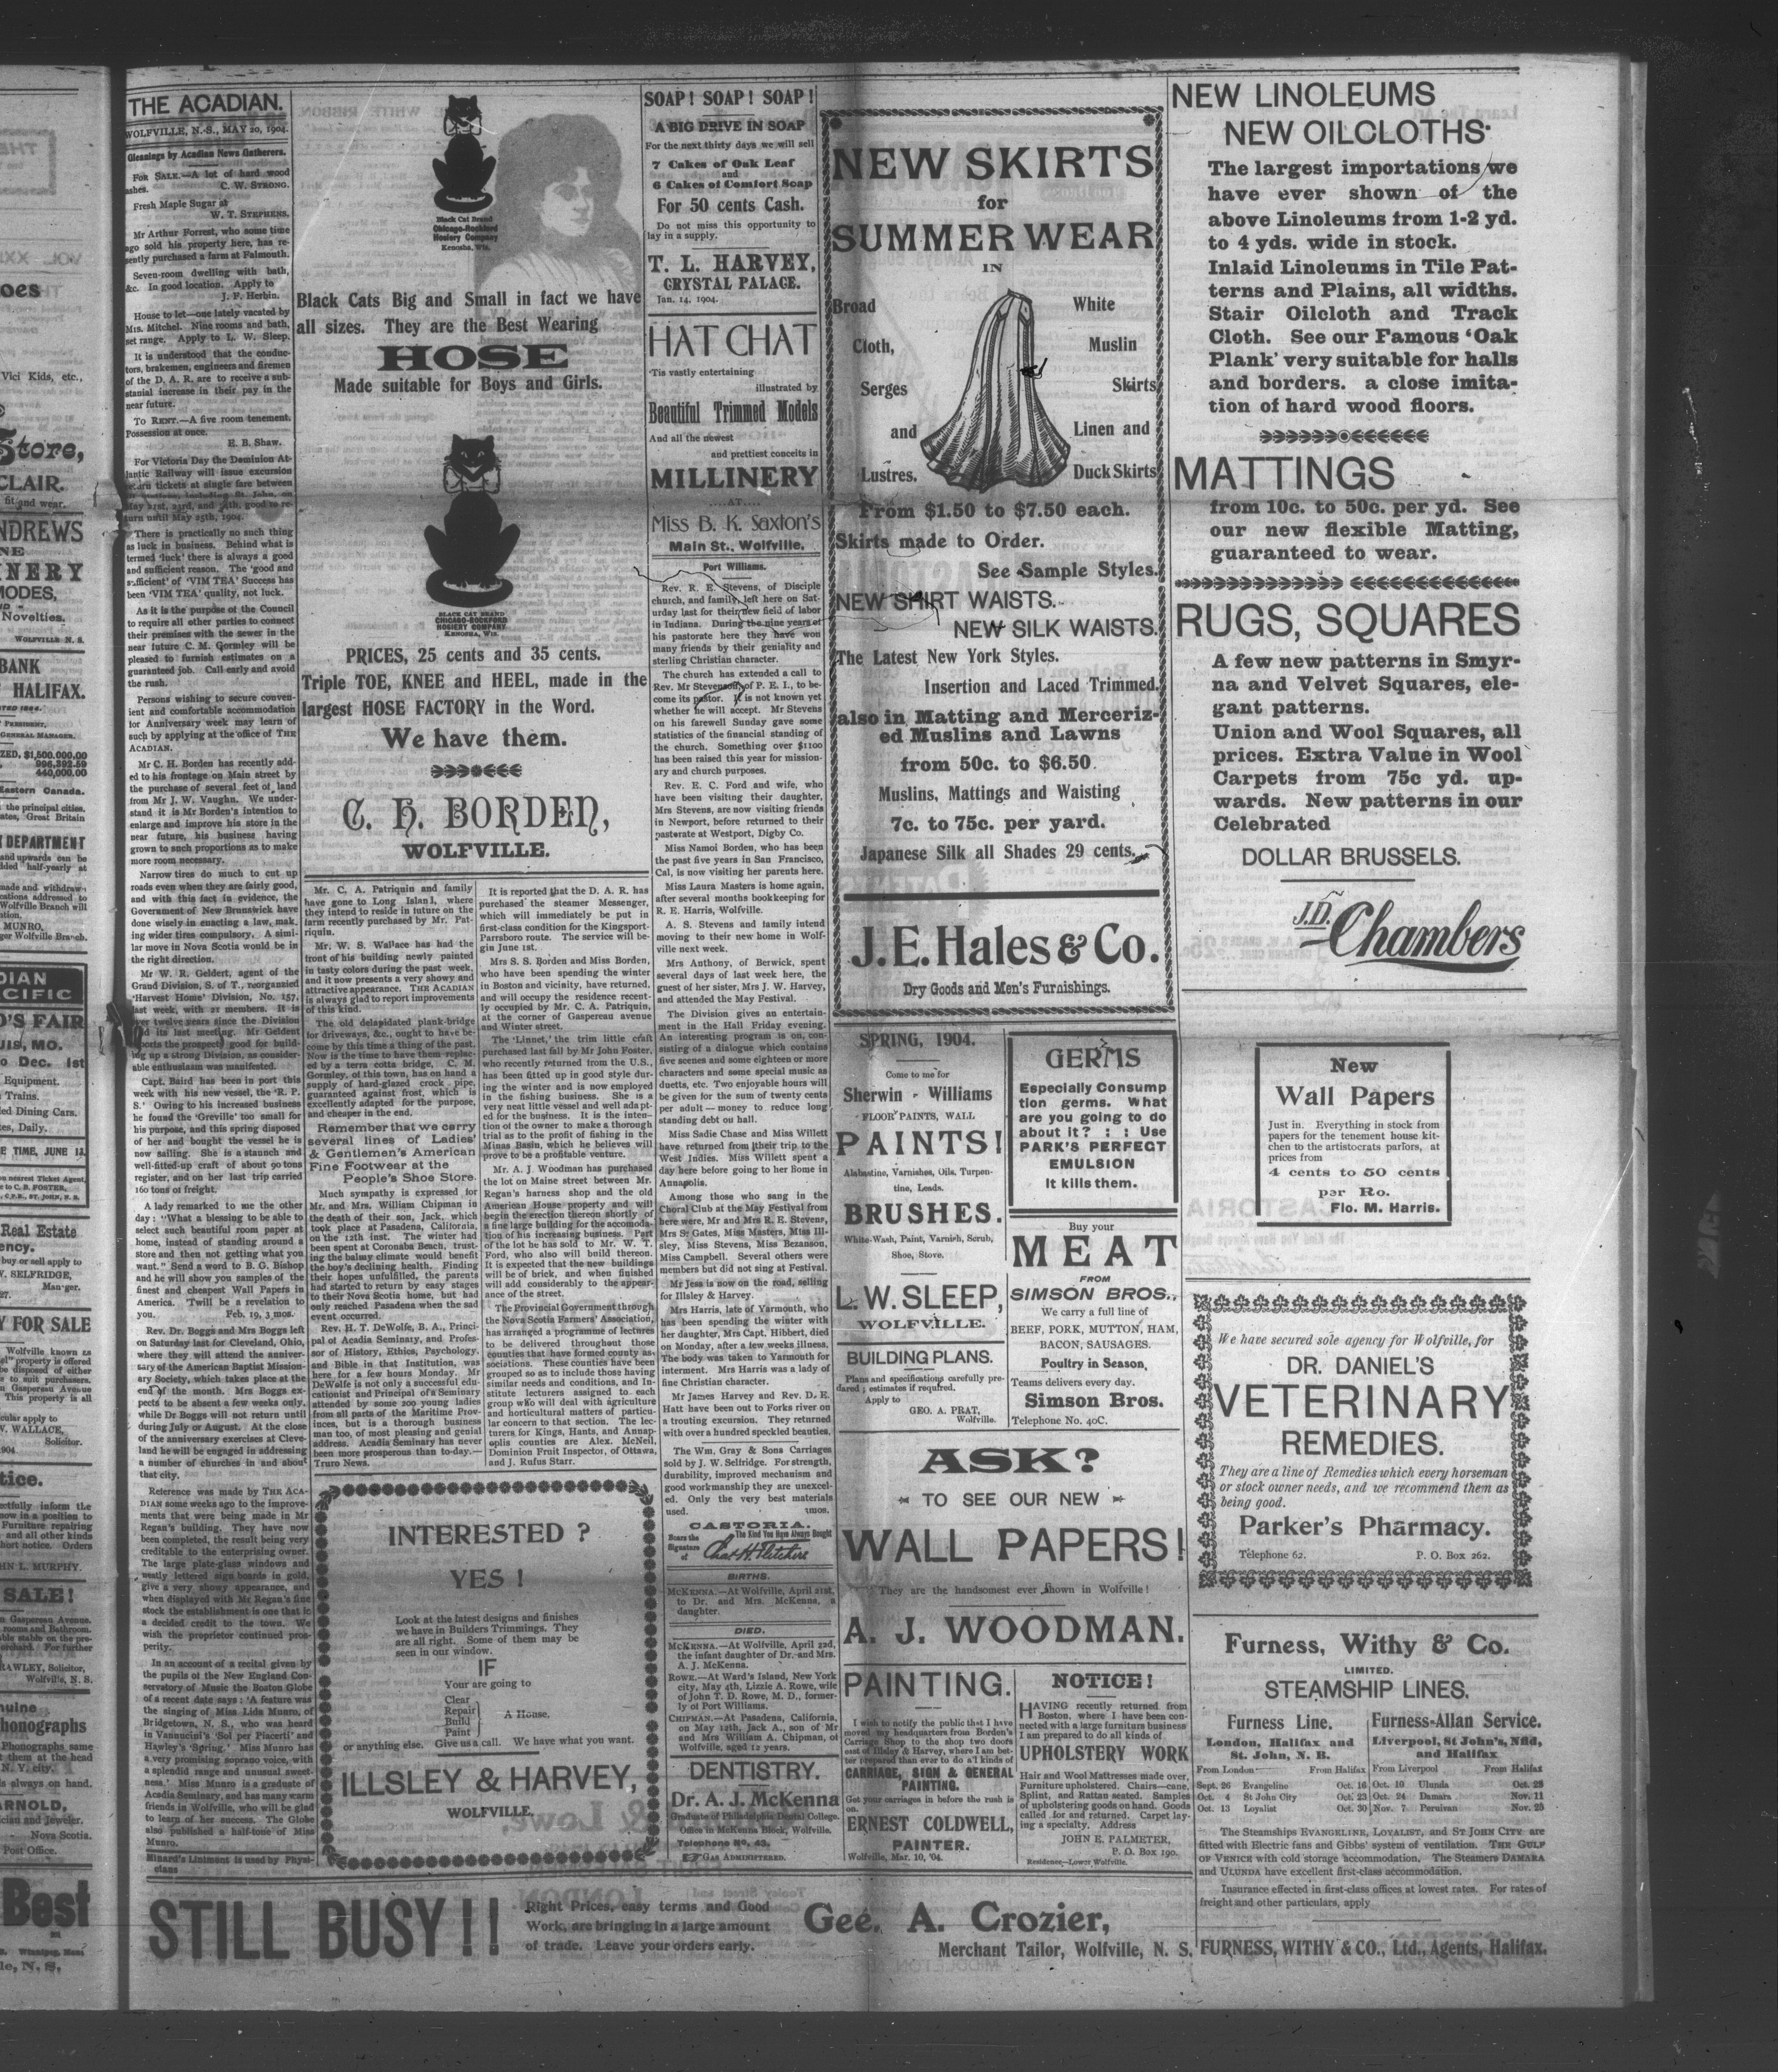 THE ACADIAN.
WOLFVILLE, N. S., MAY 20, 1904.
Gleanings by Acadian News Gatherers.
FOR SALE.—A lot of hard wood
ashes. C. W. STRONG.
Fresh Maple Sugar at
W. T. STEPHENS.
Mr Arthur Forrest, who some time
ago sold his property here, has re-
cently purchased a farm at Falmouth.
Seven-room dwelling with bath,
&c. In good location. Apply to
J. F. Herbin.
House to let—one lately vacated by
Mrs. Mitchel. Nine rooms and bath,
set range. Apply to L. W. Sleep.
It is understood that the conduc-
tors, brakemen, engineers and firemen
of the D. A. R. are to receive a sub-
stanial increase in their pay in the
near future.
TO RENT.—A five room tenement.
Possession at once.
E. B. Shaw.
For Victoria Day the Dominion At-
lantic Railway will issue excursion
return tickets at single fare between
all stations, including St. John, on
May 21st, 23rd, and 24th, good to re-
turn until May 25th, 1904.
There is practically no such thing
as luck in business. Behind what is
termed 'luck' there is always a good
and sufficient reason. The 'good and
sufficient' of 'VIM TEA' Success has
been 'VIM TEA' quality, not luck.
As it is the purpose of the Council
to require all other parties to connect
their premises with the sewer in the
near future C. M. Gormley will be
pleased to furnish estimates on a
guaranteed job. Call early and avoid
the rush.
Persons wishing to secure conven-
ient and comfortable accommodation
for Anniversary week may learn of
such by applying at the office of THE
ACADIAN.
Mr C. H. Borden has recently add-
ed to his frontage on Main street by
the purchase of several feet of land
from Mr J. W. Vaughn. We under-
stand it is Mr Borden's intention to
enlarge and improve his store in the
near future, his business having
grown to such proportions as to make
more room necessary.
Narrow tires do much to cut up
roads even when they are fairly good,
and with this fact in evidence, the
Government of New Brunswick have
done wisely in enacting a law, mak-
ing wider tires compulsory. A simi-
lar move in Nova Scotia would be in
the right direction.
Mr W. R. Geldert, agent of the
Grand Division, S. of T., reorganized
'Harvest Home' Division, No. 157,
last week, with 21 members. It is
over twelve years since the Division
held its last meeting. Mr Geldest
reports the prospect good for build-
ing up a strong Division, as consider-
able enthusiasm was manifested.
Capt. Baird has been in port this
week with his new vessel, the 'R. P.
S.' Owing to his increased business
he found the 'Greville' too small for
his purpose, and this spring disposed
of her and bought the vessel he is
now sailing. She is a staunch and
well-fitted-up craft of about 90 tons
register, and on her last trip carried
160 tons of freight.
A lady remarked to me the other
day: "What a blessing to be able to
select such beautiful room paper at
home, instead of standing around a
store and then not getting what you
want." Send a word to B. G. Bishop
and he will show you samples of the
finest and cheapest Wall Papers in
America. 'Twill be a revelation to
you. Feb. 19, 3 mos.
Rev. Dr. Boggs and Mrs Boggs left
on Saturday last for Cleveland, Ohio,
where they will attend the anniver-
sary of the American Baptist Mission-
ary Society, which takes place at the
end of the month. Mrs Boggs ex-
pects to be absent a few weeks only,
while Dr Boggs will not return until
during July or August. At the close
of the anniversary exercises at Cleve-
land he will be engaged in addressing
a number of churches in and about
that city.
Reference was made by THE ACA-
DIAN some weeks ago to the improve-
ments that were being made in Mr
Regan's building. They have now
been completed, the result being very
creditable to the enterprising owner.
The large plate-glass windows and
neatly lettered sign boards in gold,
give a very showy appearance, and
when displayed with Mr Regan's fine
stock the establishment is one that is
a decided credit to the town. We
wish the proprietor continued pros-
perity.
In an account of a recital given by
the pupils of the New England Con-
servatory of Music the Boston Globe
of a recent date says: 'A feature was
the singing of Miss Lida Munro, of
Bridgetown, N. S., who was heard
in Vannucini's 'Sol per Piacerti' and
Hawley's 'Spring.' Miss Munro has
a very promising soprano voice, with
a splendid range and unusual sweet-
ness.' Miss Munro is a graduate of
Acadia Seminary, and has many warm
friends in Wolfville, who will be glad
to learn of her success. The Globe
also published a half-tone of Miss
Munro.
Minard's Liniment is used by Physi-
cians
Black Cat Brand
Chicago-Rockford
Hosiery Company
Kenosha, Wis.
Black Cats Big and Small in fact we have
all sizes. They are the Best Wearing
HOSE
Made suitable for Boys and Girls.
BLACK CAT BRAND
CHICAGO-ROCKFORD
HOSIERY COMPANY
KENOSHA, WIS.
PRICES, 25 cents and 35 cents.
Triple TOE, KNEE and HEEL, made in the
largest HOSE FACTORY in the Word.
We have them.
C. H. BORDEN,
WOLFVILLE.
Mr. C. A. Patriquin and family
have gone to Long Island, where
they intend to reside in future on the
farm recently purchased by Mr. Pat-
riquin.
Mr. W. S. Wallace has had the
front of his building newly painted
in tasty colors during the past week,
and it now presents a very showy and
attractive appearance. THE ACADIAN
is always glad to report improvements
of this kind.
The old delapidated plank-bridge
for driveways, &c., ought to have be-
come by this time a thing of the past.
Now is the time to have them replac-
ed by a terra cotta bridge. C. M.
Gormley, of this town, has on hand a
supply of hard-glazed crock pipe,
guaranteed against frost, which is
excellently adapted for the purpose,
and cheaper in the end.
Remember that we carry
several lines of Ladies'
& Gentlemen's American
Fine Footwear at the
People's Shoe Store.
Much sympathy is expressed for
Mr. and Mrs. William Chipman in
the death of their son, Jack, which
took place at Pasadena, California,
on the 12th inst. The winter had
been spent at Coronaba Beach, trust-
ing the balmy climate would benefit
the boy's declining health. Finding
their hopes unfulfilled, the parents
had started to return by easy stages
to their Nova Scotia home, but had
only reached Pasadena when the sad
event occurred.
Rev. H. T. DeWolfe, B. A., Princi-
pal of Acadia Seminary, and Profes-
sor of History, Ethics, Psychology,
and Bible in that Institution, was
here for a few hours Monday. Mr
DeWolfe is not only a successful edu-
cationist and Principal of a Seminary
attended by some 200 young ladies
from all parts of the Maritime Prov-
inces, but is a thorough business
man too, of most pleasing and genial
address. Acadia Seminary has never
been more prosperous than to-day.—
Truro News.
It is reported that the D. A. R. has
purchased the steamer Messenger,
which will immediately be put in
first-class condition for the Kingsport-
Parrsboro route. The service will be-
gin June 1st.
Mrs S. S. Borden and Miss Borden,
who have been spending the winter
in Boston and vicinity, have returned,
and will occupy the residence recent-
ly occupied by Mr. C. A. Patriquin,
at the corner of Gaspereau avenue
and Winter street.
The 'Linnet,' the trim little craft
purchased last fall by Mr John Foster,
who recently returned from the U.S.,
has been fitted up in good style dur-
ing the winter and is now employed
in the fishing business. She is a
very neat little vessel and well adapt-
ed for the business. It is the inten-
tion of the owner to make a thorough
trial as to the profit of fishing in the
Minas Basin, which he believes will
prove to be a profitable venture.
Mr. A. J. Woodman has purchased
the lot on Maine street between Mr.
Regan's harness shop and the old
American House property and will
begin the erection thereon shortly of
a fine large building for the accomoda-
tion of his increasing business. Part
of the lot he has sold to Mr. W. T.
Ford, who also will build thereon.
It is expected that the new buildings
will be of brick, and when finished
will add considerably to the appear-
ance of the street.
The Provincial Government through
the Nova Scotia Farmers' Association,
has arranged a programme of lectures
to be delivered throughout those
counties that have formed county as-
sociations. These counties have been
grouped so as to include those having
similar needs and conditions, and In-
stitute lecturers assigned to each
group who will deal with agriculture
and horticultural matters of particu-
lar concern to that section. The lec-
turers for Kings, Hants, and Annap-
oplis counties are Alex. McNeil,
Dominion Fruit Inspector, of Ottawa,
and J. Rufus Starr.
INTERESTED ?
YES !
Look at the latest designs and finishes
we have in Builders Trimmings. They
are all right. Some of them may be
seen in our window.
IF
Your are going to
Clear
Repair
Build
Paint
A House.
or anything else. Give us a call. We have what you want.
ILLSLEY & HARVEY,
WOLFVILLE.
SOAP! SOAP! SOAP!
A BIG DRIVE IN SOAP
For the next thirty days we will sell
7 Cakes of Oak Leaf
and
6 Cakes of Comfort Soap
For 50 cents Cash.
Do not miss this opportunity to
lay in a supply.
T. L. HARVEY,
CRYSTAL PALACE.
Jan. 14, 1904.
HAT CHAT
'Tis vastly entertaining
illustrated by
Beautiful Trimmed Models
And all the newest
and prettiest conceits in
MILLINERY
....AT....
Miss B. K. Saxton's
Main St., Wolfville.
Port Williams.
Rev. R. E. Stevens, of Disciple
church, and family, left here on Sat-
urday last for their new field of labor
in Indiana. During the nine years of
his pastorate here they have won
many friends by their geniality and
sterling Christian character.
The church has extended a call to
Rev. Mr Stevenson, of P. E. I., to be-
come its pastor. It is not known yet
whether he will accept. Mr Stevens
on his farewell Sunday gave some
statistics of the financial standing of
the church. Something over $1100
has been raised this year for mission-
ary and church purposes.
Rev. E. C. Ford and wife, who
have been visiting their daughter,
Mrs Stevens, are now visiting friends
in Newport, before returned to their
pastorate at Westport, Digby Co.
Miss Namoi Borden, who has been
the past five years in San Francisco,
Cal, is now visiting her parents here.
Miss Laura Masters is home again,
after several months bookkeeping for
R. E. Harris, Wolfville.
A. S. Stevens and family intend
moving to their new home in Wolf-
ville next week.
Mrs Anthony, of Berwick, spent
several days of last week here, the
guest of her sister, Mrs J. W. Harvey,
and attended the May Festival.
The Division gives an entertain-
ment in the Hall Friday evening.
An interesting program is on, con-
sisting of a dialogue which contains
five scenes and some eighteen or more
characters and some special music as
duetts, etc. Two enjoyable hours will
be given for the sum of twenty cents
per adult — money to reduce long
standing debt on hall.
Miss Sadie Chase and Miss Willett
have returned from their trip to the
West Indies. Miss Willett spent a
day here before going to her home in
Annapolis.
Among those who sang in the
Choral Club at the May Festival from
here were, Mr and Mrs R. E. Stevens,
Mrs S. Gates, Miss Masters, Miss Ill-
sley, Miss Stevens, Miss Bezanson,
Miss Campbell. Several others were
members but did not sing at Festival.
Mr Jess is now on the road, selling
for Illsley & Harvey.
Mrs Harris, late of Yarmouth, who
has been spending the winter with
her daughter, Mrs Capt. Hibbert, died
on Monday, after a few weeks illness.
The body was taken to Yarmouth for
interment. Mrs Harris was a lady of
fine Christian character.
Mr James Harvey and Rev. D. E.
Hatt have been out to Forks river on
a trouting excursion. They returned
with over a hundred speckled beauties.
The Wm. Gray & Sons Carriages
sold by J. W. Selfridge. For strength,
durability, improved mechanism and
good workmanship they are unexcel-
ed. Only the very best materials
used.
CASTORIA.
Bears the
Signature
of
The Kind You Have Always Bought
Chas H. Fletcher
BIRTHS.
MCKENNA.—At Wolfville, April 21st,
to Dr. and Mrs. McKenna, a
daughter.
DIED.
MCKENNA.—At Wolfville, April 22d,
the infant daughter of Dr. and Mrs.
A. J. McKenna.
ROWE.—At Ward's Island, New York
city, May 4th, Lizzie A. Rowe, wife
of John T. D. Rowe, M. D., former-
ly of Port Williams.
CHIPMAN.—At Pasadena, California,
on May 12th, Jack A., son of Mr
and Mrs William A. Chipman, of
Wolfville, aged 12 years.
DENTISTRY.
Dr. A. J. McKenna
Graduate of Philadelphia Dental College.
Office in McKenna Block, Wolfville.
Telephone No. 43.
GAS ADMINISTERED.
NEW SKIRTS
for
SUMMER WEAR
IN
Broad
Cloth,
Serges
and
Lustres.
White
Muslin
Skirts
Linen and
Duck Skirts
From $1.50 to $7.50 each.
Skirts made to Order.
See Sample Styles.
NEW SHIRT WAISTS.
NEW SILK WAISTS.
The Latest New York Styles.
Insertion and Laced Trimmed.
also in Matting and Merceriz-
ed Muslins and Lawns
from 50c. to $6.50.
Muslins, Mattings and Waisting
7c. to 75c. per yard.
Japanese Silk all Shades 29 cents.
J. E. Hales & Co.
Dry Goods and Men's Furnishings.
SPRING, 1904.
Come to me for
Sherwin - Williams
FLOOR PAINTS, WALL
PAINTS!
Alabastine, Varnishes, Oils, Turpen-
tine, Leads.
BRUSHES.
White-Wash, Paint, Varnish, Scrub,
Shoe, Stove.
L. W. SLEEP,
WOLFVILLE.
BUILDING PLANS.
Plans and specifications carefully pre-
dared; estimates if required.
Apply to
GEO. A. PRAT,
Wolfville.
GERMS
Especially Consump
tion germs. What
are you going to do
about it? : : Use
PARK'S PERFECT
EMULSION
It kills them.
Buy your
MEAT
FROM
SIMSON BROS.,
We carry a full line of
BEEF, PORK, MUTTON, HAM,
BACON, SAUSAGES.
Poultry in Season,
Teams delivers every day.
Simson Bros.
Telephone No. 40C.
ASK?
TO SEE OUR NEW
WALL PAPERS!
They are the handsomest ever shown in Wolfville!
A. J. WOODMAN.
PAINTING.
I wish to notify the public that I have
moved my headquarters from Borden's
Carriage Shop to the shop two doors
east of Illsley & Harvey, where I am bet-
ter prepared than ever to do all kinds of
CARRIAGE, SIGN & GENERAL
PAINTING.
Get your carriages in before the rush is
on.
ERNEST COLDWELL,
PAINTER.
Wolfville, Mar. 10, '04.
NOTICE!
HAVING recently returned from
Boston, where I have been con-
nected with a large furniture business
I am prepared to do all kinds of
UPHOLSTERY WORK
Hair and Wool Mattresses made over,
Furniture upholstered. Chairs—cane,
Splint, and Rattan seated. Samples
of upholstering goods on hand. Goods
called for and returned. Carpet lay-
ing a specialty. Address
JOHN E. PALMETER,
P. O. Box 190.
Residence,—Lower Wolfville.
NEW LINOLEUMS
NEW OILCLOTHS.
The largest importations we
have ever shown of the
above Linoleums from 1-2 yd.
to 4 yds. wide in stock.
Inlaid Linoleums in Tile Pat-
terns and Plains, all widths.
Stair Oilcloth and Track
Cloth. See our Famous 'Oak
Plank' very suitable for halls
and borders. a close imita-
tion of hard wood floors.
MATTINGS
from 10c. to 50c. per yd. See
our new flexible Matting,
guaranteed to wear.
RUGS, SQUARES
A few new patterns in Smyr-
na and Velvet Squares, ele-
gant patterns.
Union and Wool Squares, all
prices. Extra Value in Wool
Carpets from 75c yd. up-
wards. New patterns in our
Celebrated
DOLLAR BRUSSELS.
J. D. Chambers
New
Wall Papers
Just in. Everything in stock from
papers for the tenement house kit-
chen to the artistocrats parlors, at
prices from
4 cents to 50 cents
per Ro.
Flo. M. Harris.
We have secured sole agency for Wolfville, for
DR. DANIEL'S
VETERINARY
REMEDIES.
They are a line of Remedies which every horseman
or stock owner needs, and we recommend them as
being good.
Parker's Pharmacy.
Telephone 62. P. O. Box 262.
Furness, Withy & Co.
LIMITED.
STEAMSHIP LINES.
Furness Line.
London, Halifax and
St. John, N. B.
From London From Halifax
Sept. 26 Evangeline Oct. 16
Oct. 4 St John City Oct. 23
Oct. 13 Loyalist Oct. 30
Furness-Allan Service.
Liverpool, St John's, Nfld,
and Halifax
From Liverpool From Halifax
Oct. 10 Ulunda Oct. 28
Oct. 24 Damara Nov. 11
Nov. 7 Peruvian Nov. 25
The Steamships EVANGELINE, LOYALIST, and ST JOHN CITY are
fitted with Electric fans and Gibbs' system of ventilation. THE GULF
OF VENICE with cold storage accommodation. The Steamers DAMARA
and ULUNDA have excellent first-class accommodation.
Insurance effected in first-class offices at lowest rates. For rates of
freight and other particulars, apply
FURNESS, WITHY & CO., Ltd., Agents, Halifax.
STILL BUSY!!
Right Prices, easy terms and Good
Work, are bringing in a large amount
of trade. Leave your orders early.
Geo. A. Crozier,
Merchant Tailor, Wolfville, N. S.